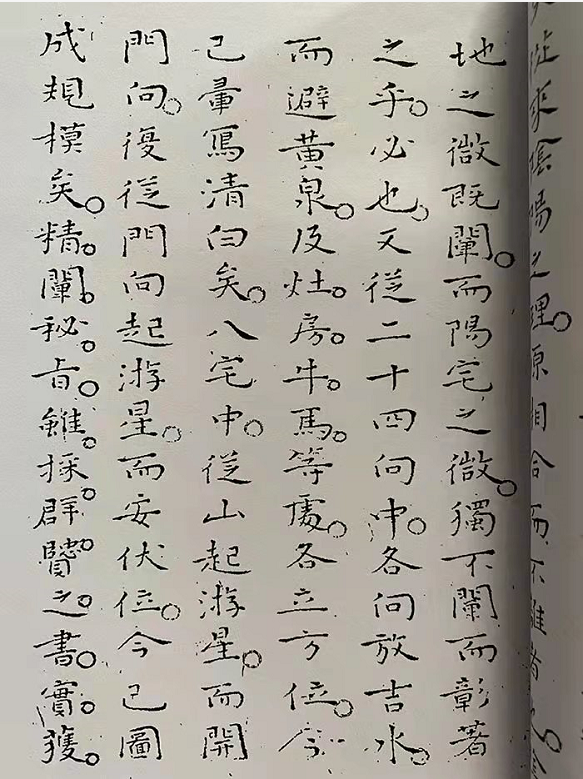 從來陰陽之理。原相合而不離者也。陰
地之微既闡。而陽宅之微。獨不闡而彰著
之乎。必也。又從二十四向中。各向放吉水。
而避黃泉。及灶。房。牛。馬。等處。各立方位。今
已彙寫清白矣。八宅中。從山起游星。而開
門向。復從門向起游星。而安伏位。今已圖
成規模矣。精。闡。秘。旨。雖。採。群賢。之。書。實。獲。